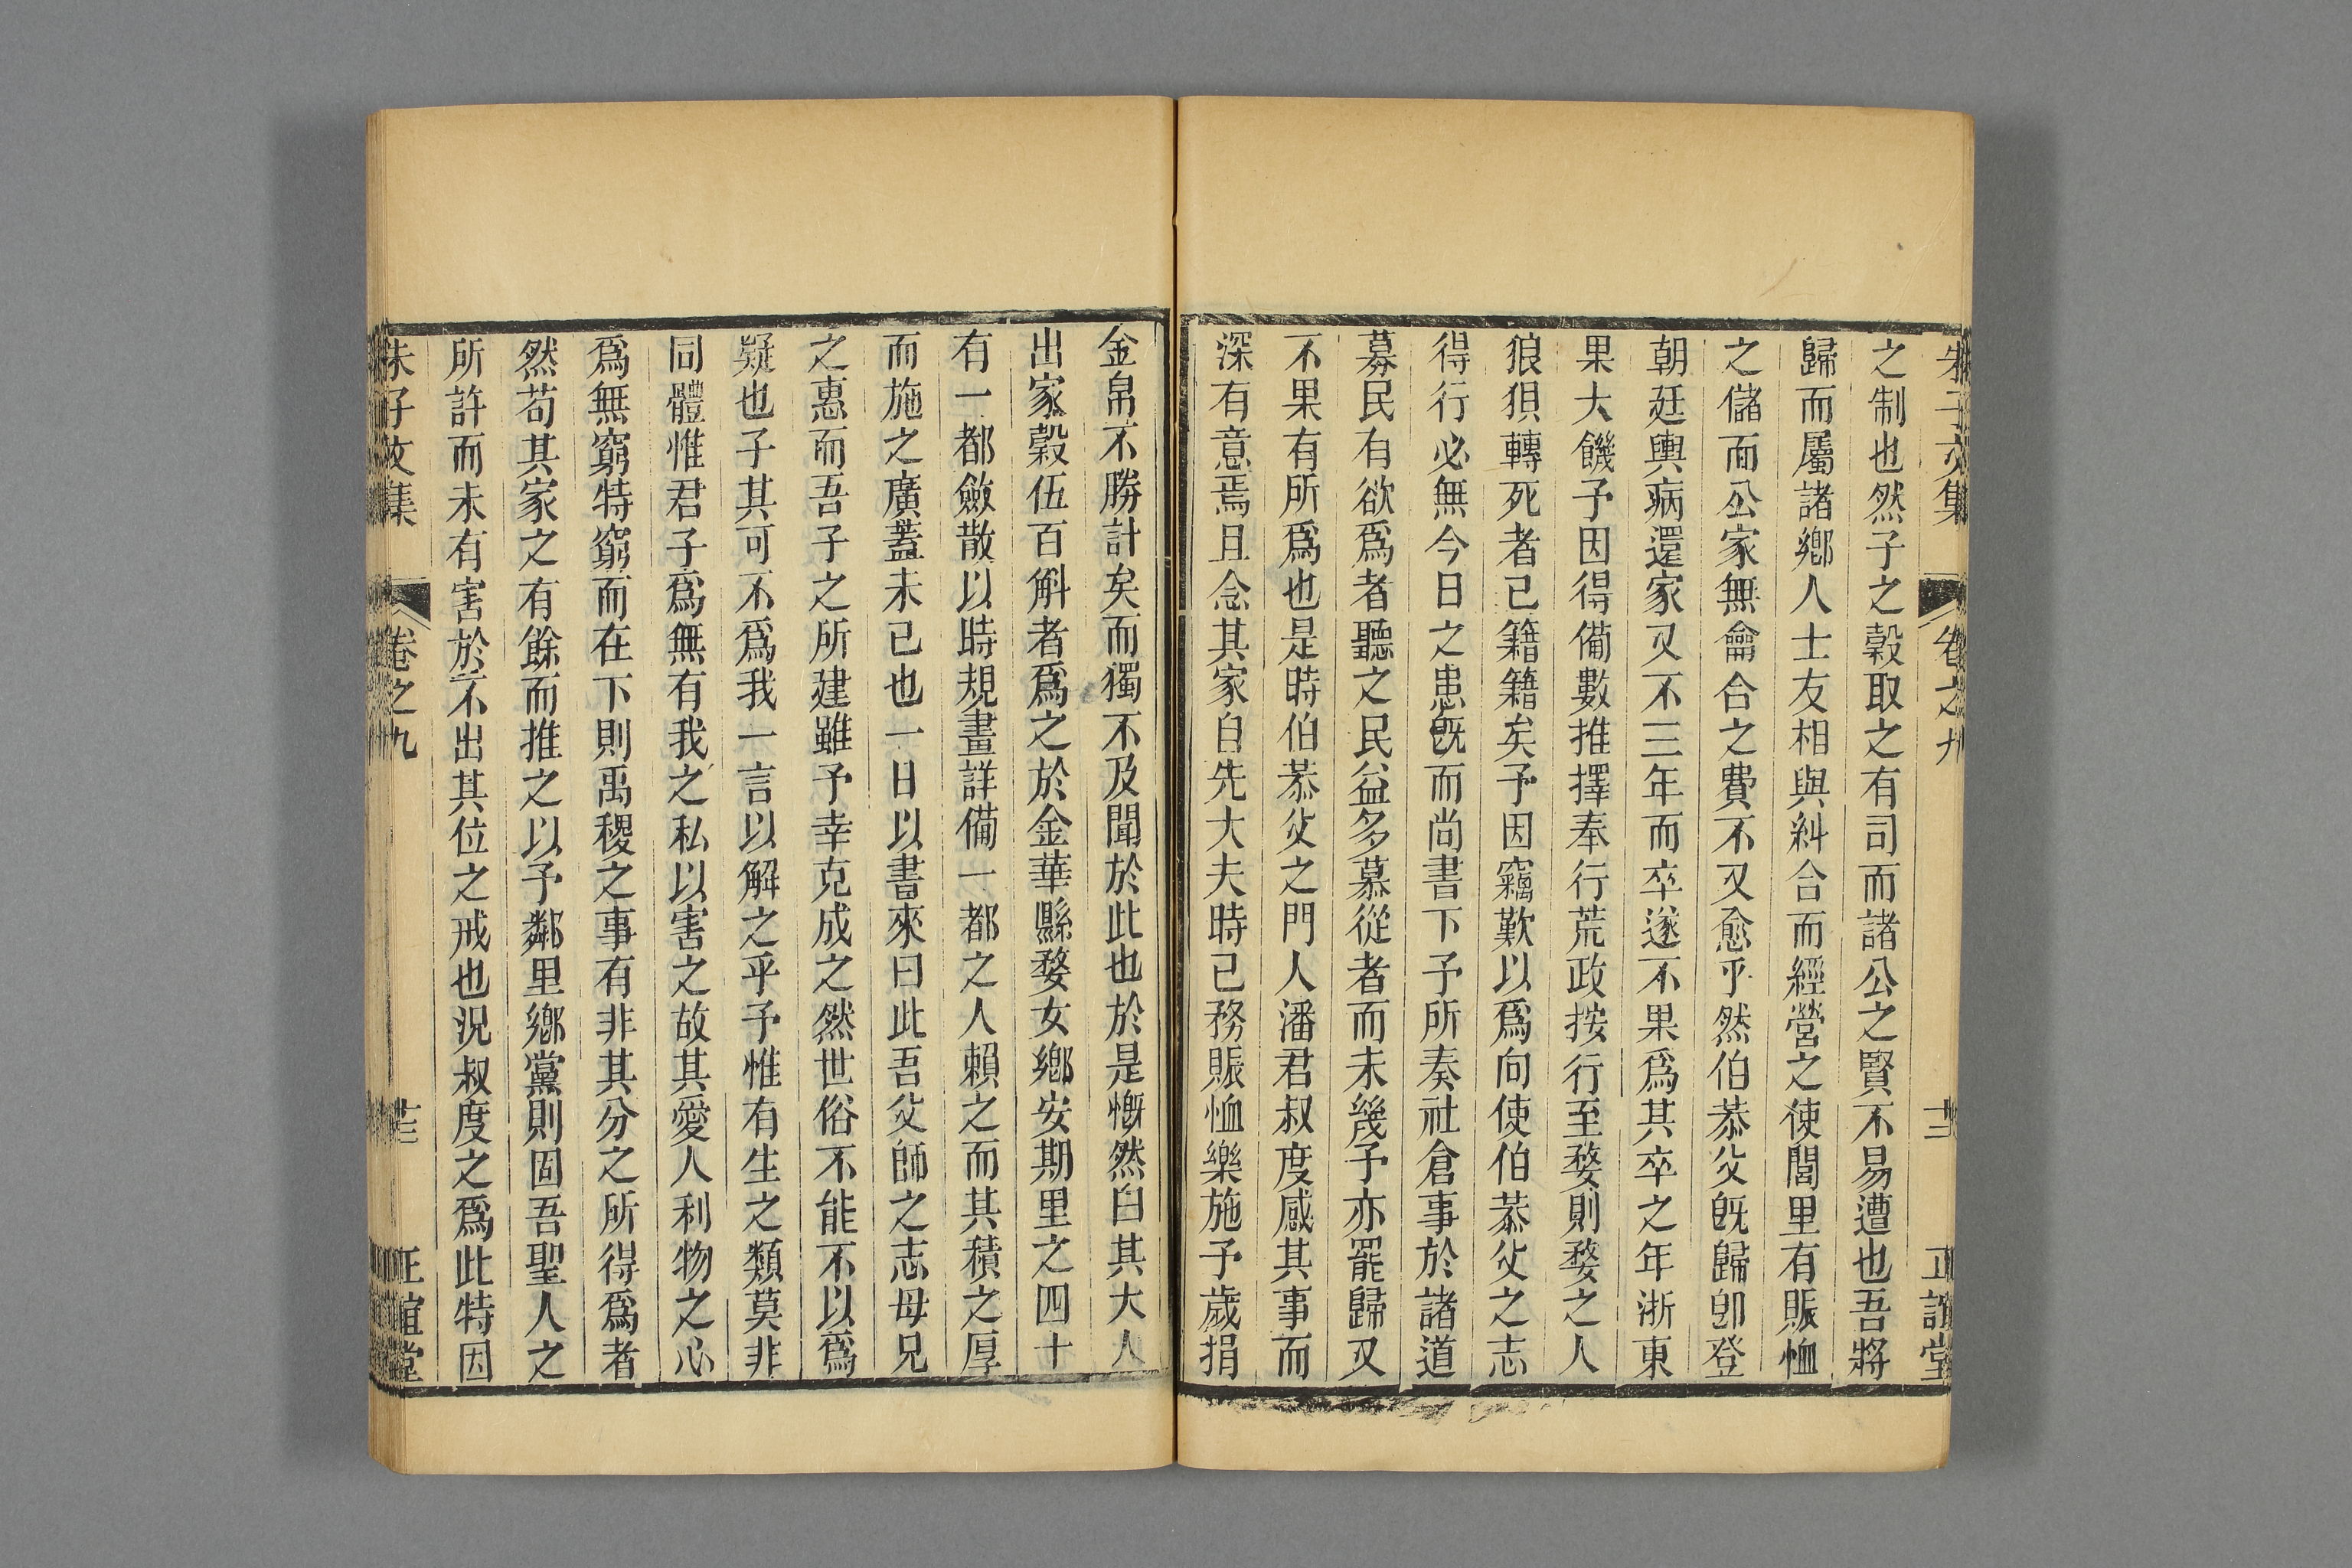 朱子文集 卷之九 十二 正誼堂
之制也然子之穀取之有司而諸公之賢不易遭也吾將
歸而屬諸鄉人士友相與糾合而經營之使閭里有賑恤
之儲而公家無龠合之費不又愈乎然伯恭父旣歸卽登
朝廷輿病還家又不三年而卒遂不果爲其卒之年浙東
果大饑予因得備數推擇奉行荒政按行至婺則婺之人
狼狽轉死者已籍籍矣予因竊歎以爲向使伯恭父之志
得行必無今日之患旣而尚書下予所奏社倉事於諸道
募民有欲爲者聽之民益多慕從者而未幾予亦罷歸又
不果有所爲也是時伯恭父之門人潘君叔度感其事而
深有意焉且念其家自先大夫時已務賑恤樂施予歲捐
金帛不勝計矣而獨不及聞於此也於是慨然白其大人
出家穀伍百斛者爲之於金華縣婺女鄉安期里之四十
有一都斂散以時規畫詳備一都之人賴之而其積之厚
而施之廣蓋未已也一日以書來曰此吾父師之志母兄
之惠而吾子之所建雖予幸克成之然世俗不能不以爲
疑也子其可不爲我一言以解之乎予惟有生之類莫非
同體惟君子爲無有我之私以害之故其愛人利物之心
爲無窮特窮而在下則禹稷之事有非其分之所得爲者
然苟其家之有餘而推之以予鄰里鄉黨則固吾聖人之
所許而未有害於不出其位之戒也況叔度之爲此特因
朱子文集 卷之九 十三 正誼堂